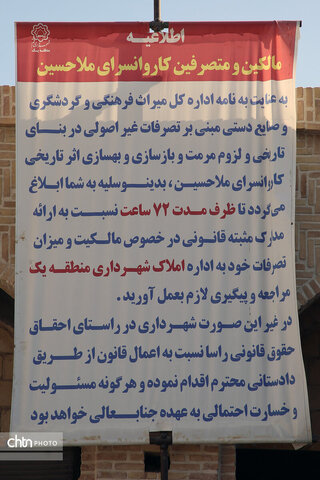 اطلاعیه
مالکین و متصرفین کاروانسرای ملاحسین
به عنایت به نامه اداره کل میراث فرهنگی و گردشگری
و صنایع دستی مبنی بر تصرفات غیر اصولی در بنای
تاریخی و لزوم مرمت و بازسازی و بهسازی اثر تاریخی
کاروانسرای ملاحسین ، بدینوسلیه به شما ابلاغ
می‌گردد تا ظرف مدت ۷۲ ساعت نسبت به ارائه
مدارک مثبته قانونی در خصوص مالکیت و میزان
تصرفات خود به اداره املاک شهرداری منطقه یک
مراجعه و پیگیری لازم بعمل آورید .
در غیر این صورت شهرداری در راستای احقاق
حقوق قانونی راسا نسبت به اعمال قانون از طریق
دادستانی محترم اقدام نموده و هرگونه مسئولیت
و خسارت احتمالی به عهده جنابعالی خواهد بود
chtn PHOTO